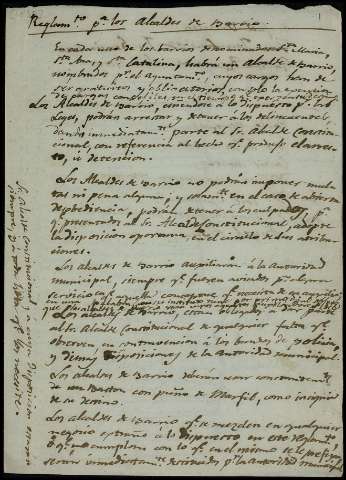 Reglam.to p.a los Alcaldes de Barrio.
En cada uno de los barrios denominados S.ta Maria,
S.ta Ana, y S.ta Catalina, habrá un Alcalde de Barrio,
nombrados p.r el Ayuntam.to, cuyos cargos han de
ser gratuitos y obligatorios, con solo la
de cargas concejiles
Los Alcaldes de Barrio, ciñendose á lo dispuesto p.r las
Leyes, podrán arrestar y detener á los delincuentes,
dando inmediatam.te parte al Sr. Alcalde Constitu-
cional, con referencia al hecho q.e produjo el arres-
to, ó detencion.
Los Alcaldes de Barrio no podrán imponer mul-
tas ni pena alguna, y solam.te en el caso de abierta
desobediencia, podrán detener á los culpados, p.a
q.e presentados al Sr. Alcalde Constitucional, adopte
la disposicion oportuna en el circulo de sus atribu-
ciones.
Los alcaldes de Barrio auxiliarán á la autoridad
municipal, siempre q.e fueren avisados p.a algun
servicio
Los alcaldes de Barrio, están obligados á dar parte
al Sr. Alcalde Constitucional de qualquier falta q.e
observen en contravencion á los bandos de policia,
y demas disposiciones de la autoridad municipal.
Los alcaldes de Barrio deberán usar constantem.te
de un Baston con puño de Marfil, como insignia
de su destino.
Los alcaldes de Barrio q.e se mezclen en qualquier
negocio extraño á lo dispuesto en este Reglam.to
ó q.e no cumplan con lo q.e en el mismo se les previene,
serán inmediatam.te p.r la autoridad municipal